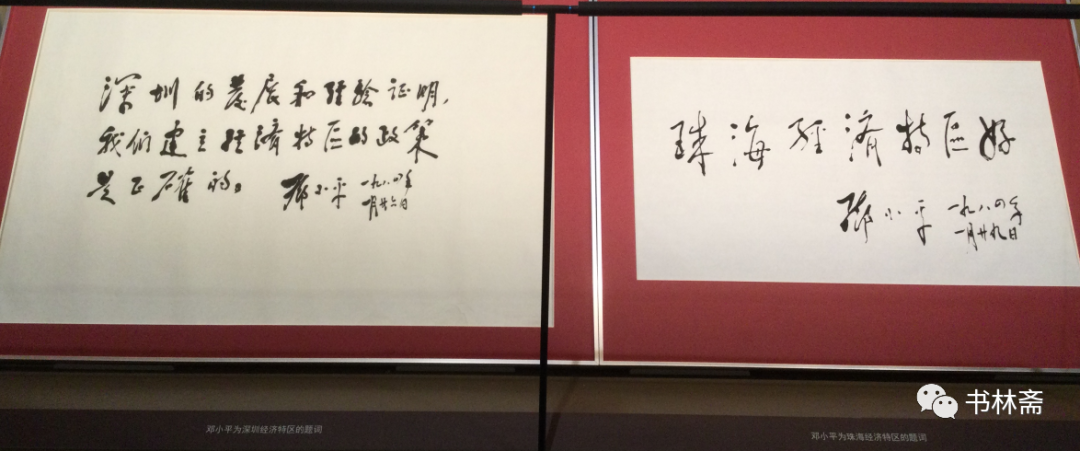 深圳的發展和經驗证明,
我们建立經濟特区的政策
是正確的。 邓小平 一九八四年
一月廿六日
珠海經濟特区好
邓小平 一九八四年
一月廿九日
邓小平为深圳经济特区的题词
邓小平为珠海经济特区的题词
书林斋